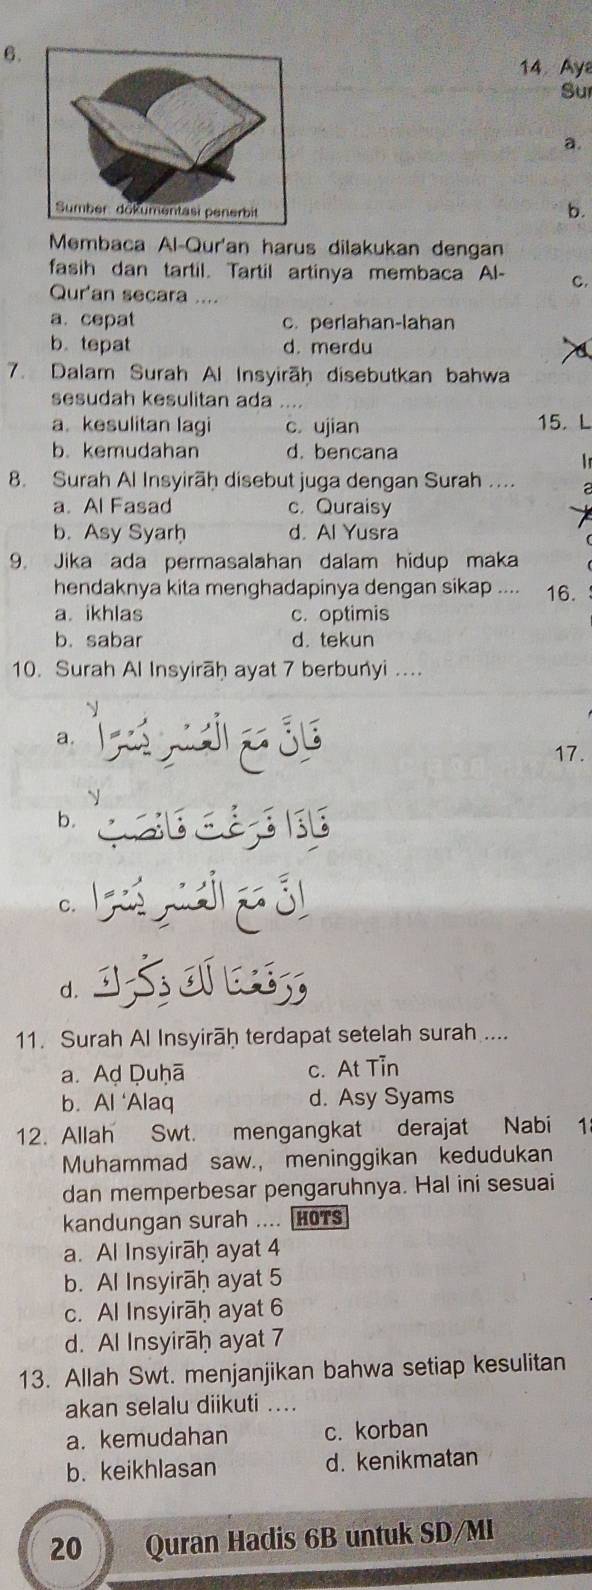 6.
Sumber: dokumentasi penerbit
Membaca Al-Qur'an harus dilakukan dengan
fasih dan tartil. Tartil artinya membaca Al-
Qur'an secara ....
a. cepat c. perlahan-lahan
b. tepat d. merdu
7. Dalam Surah Al Insyirāḥ disebutkan bahwa
sesudah kesulitan ada ....
a. kesulitan lagi c. ujian
b. kemudahan d. bencana
8. Surah Al Insyirāḥ disebut juga dengan Surah ....
a. Al Fasad c. Quraisy
b. Asy Syarḥ d. Al Yusra
9. Jika ada permasalahan dalam hidup maka
hendaknya kita menghadapinya dengan sikap ....
a. ikhlas c. optimis
b. sabar d. tekun
10. Surah Al Insyirāḥ ayat 7 berbunyi ....
a. فَاِنَّ مَعَ الْعُسْرِ يُسْرًا
b. فَاِذَا فَرَغْتَ فَانْصَبْ
c. اِنَّ مَعَ الْعُسْرِ يُسْرًا
d. وَرَفَعْنَا لَكَ ذِكْرَكَ
11. Surah Al Insyirāḥ terdapat setelah surah ....
a. Aḍ Ḍuḥā c. At Tīn
b. Al ‘Alaq d. Asy Syams
12. Allah Swt. mengangkat derajat Nabi
Muhammad saw., meninggikan kedudukan
dan memperbesar pengaruhnya. Hal ini sesuai
kandungan surah .... HOTS
a. Al Insyirāḥ ayat 4
b. Al Insyirāḥ ayat 5
c. Al Insyirāḥ ayat 6
d. Al Insyirāḥ ayat 7
13. Allah Swt. menjanjikan bahwa setiap kesulitan
akan selalu diikuti ....
a. kemudahan c. korban
b. keikhlasan d. kenikmatan
14.
a.
b.
c.
15.
16.
17.
20 Quran Hadis 6B untuk SD/MI